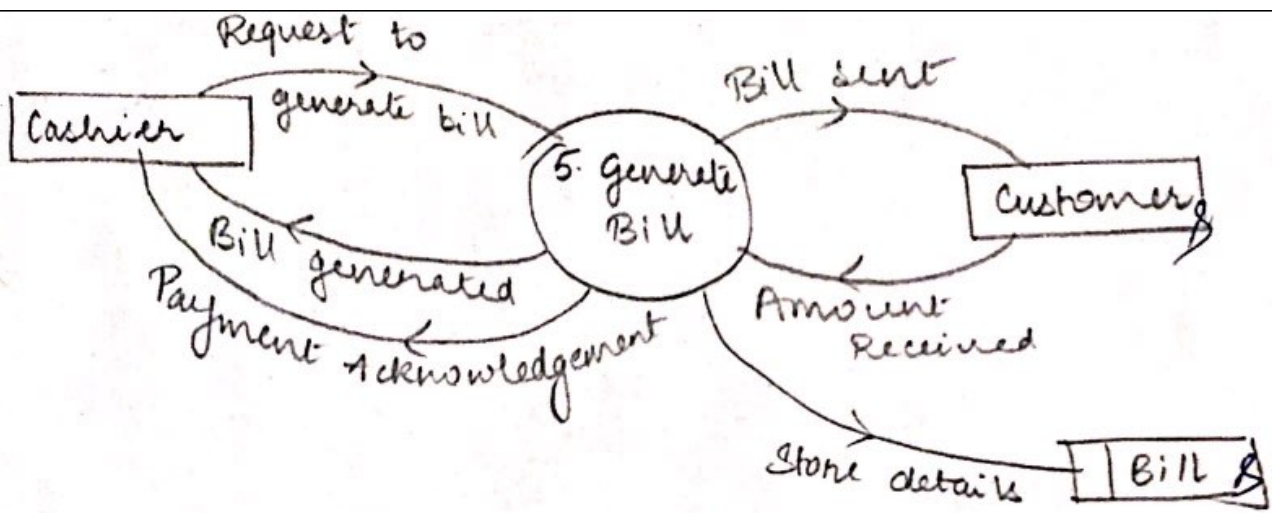 Request to
generate bill
Cashier
Bill sent
5. Generate
Bill
Customer
Bill generated
Payment Acknowledgement
Amount
Received
Store details
Bill